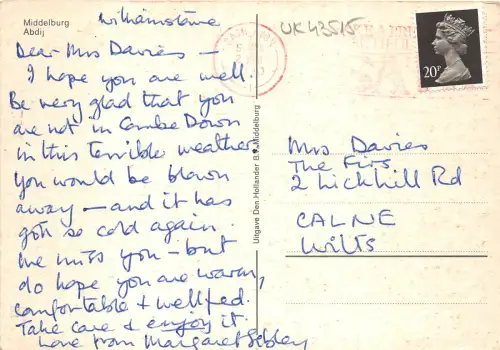 Middelburg
Abdij
Williamstowe
Dear Mrs Davies —
I hope you are well.
Be very glad that you
are not in Combe Down
in this terrible weather.
You would be blown
away — and it has
got so cold again.
We miss you — but
do hope you are warm,
comfortable + wellfed.
Take care + enjoy it.
Love from Margaret
Uitgave Den Hollander B.V. Middelburg
UK43515
20P
Mrs Davies
The Firs
2 Lickhill Rd
CALNE
Wilts